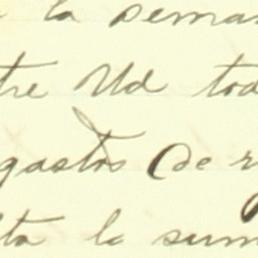 la deman
tre Ud tod
gastos (de r
ta la sum